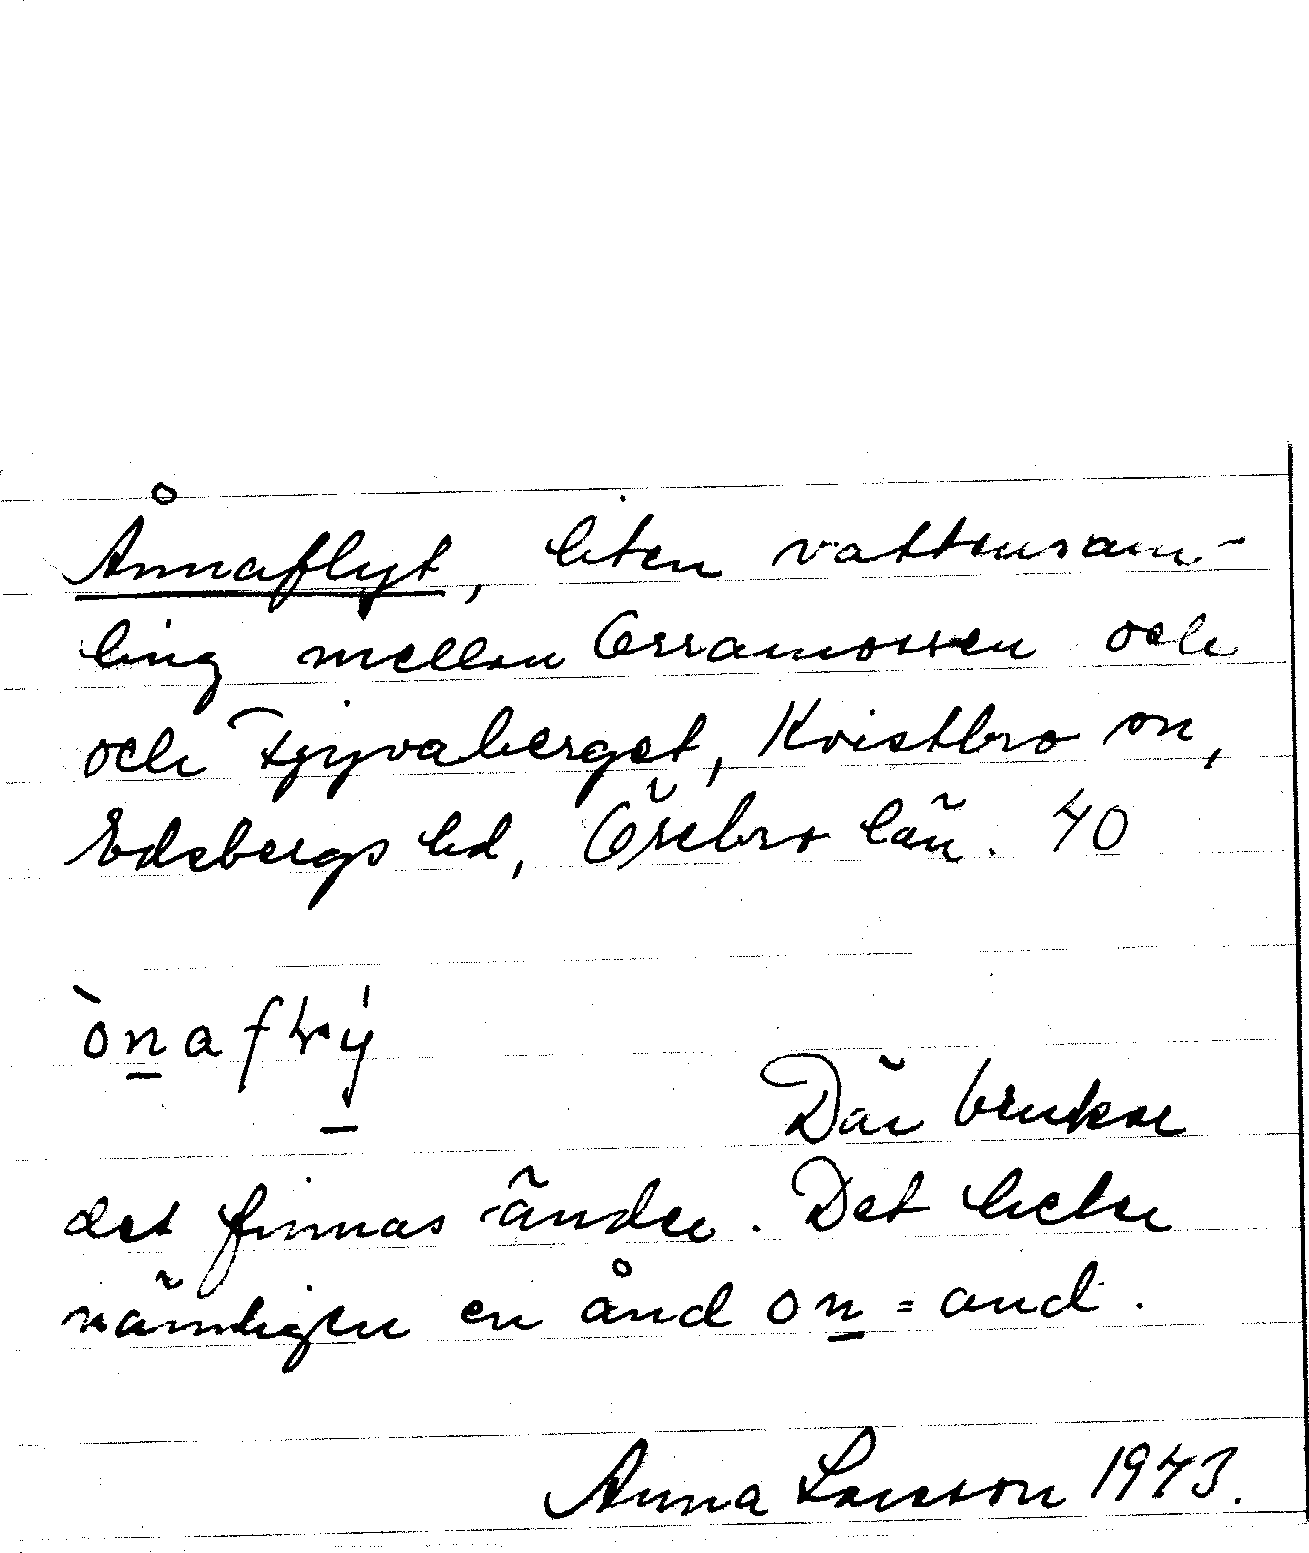 Ånnaflyt, liten vattensam-
ling mellan Orramossen och
och Tjyvaberget, Kvistbro sn,
Edsbergs hd, Örebro län. 40
ònaf
Där brukar
det finnas änder. Det heter
nämligen en ånd on = and.
Anna Larsson 1943.